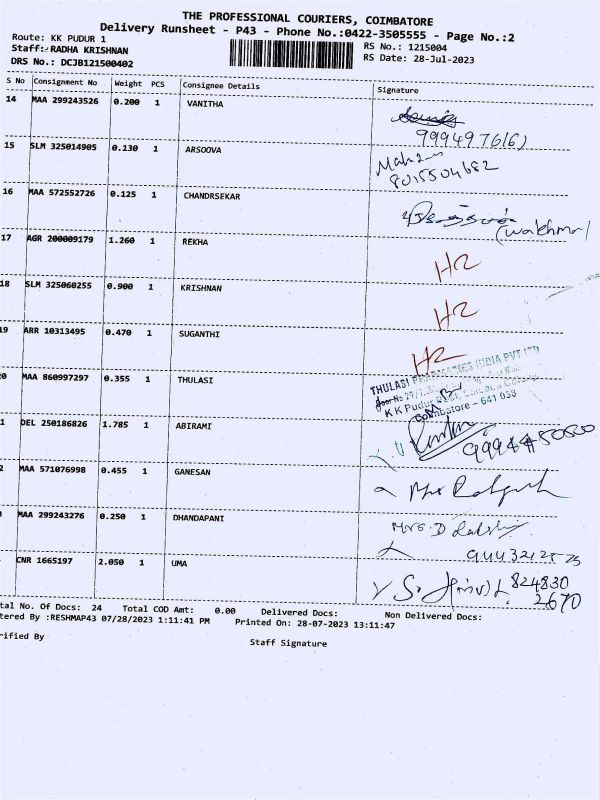 THE PROFESSIONAL COURIERS, COIMBATORE
Delivery Runsheet - P43 - Phone No.:0422-3505555 - Page No.:2
Route: KK PUDUR 1
RS No.: 1215004
Staff: RADHA KRISHNAN
RS Date: 28-Jul-2023
DRS No.: DCJB121500402
S No Consignment No Weight PCS Consignee Details Signature
14 MAA 299243526 0.200 1 VANITHA
15 SLM 325014905 0.130 1 ARSOOVA
8015504682
16 MAA 572552726 0.125 1 CHANDRSEKAR
17 AGR 200009179 1.260 1 REKHA H2
18 SLM 325060255 0.900 1 KRISHNAN H2
19 ARR 10313495 0.470 1 SUGANTHI H2
0 MAA 860997297 0.355 1 THULASI
THULASI PHARMACIES INDIA PVT LTD
K K Pudur
Coimbatore - 641 038
1 DEL 250186826 1.785 1 ABIRAMI
2 MAA 571076998 0.455 1 GANESAN
MAA 299243276 0.250 1 DHANDAPANI
Mrs. D
CNR 1665197 2.050 1 UMA
824830
2670
tal No. Of Docs: 24 Total COD Amt: 0.00 Delivered Docs: Non Delivered Docs:
tered By :RESHMAP43 07/28/2023 1:11:41 PM Printed On: 28-07-2023 13:11:47
rified By Staff Signature